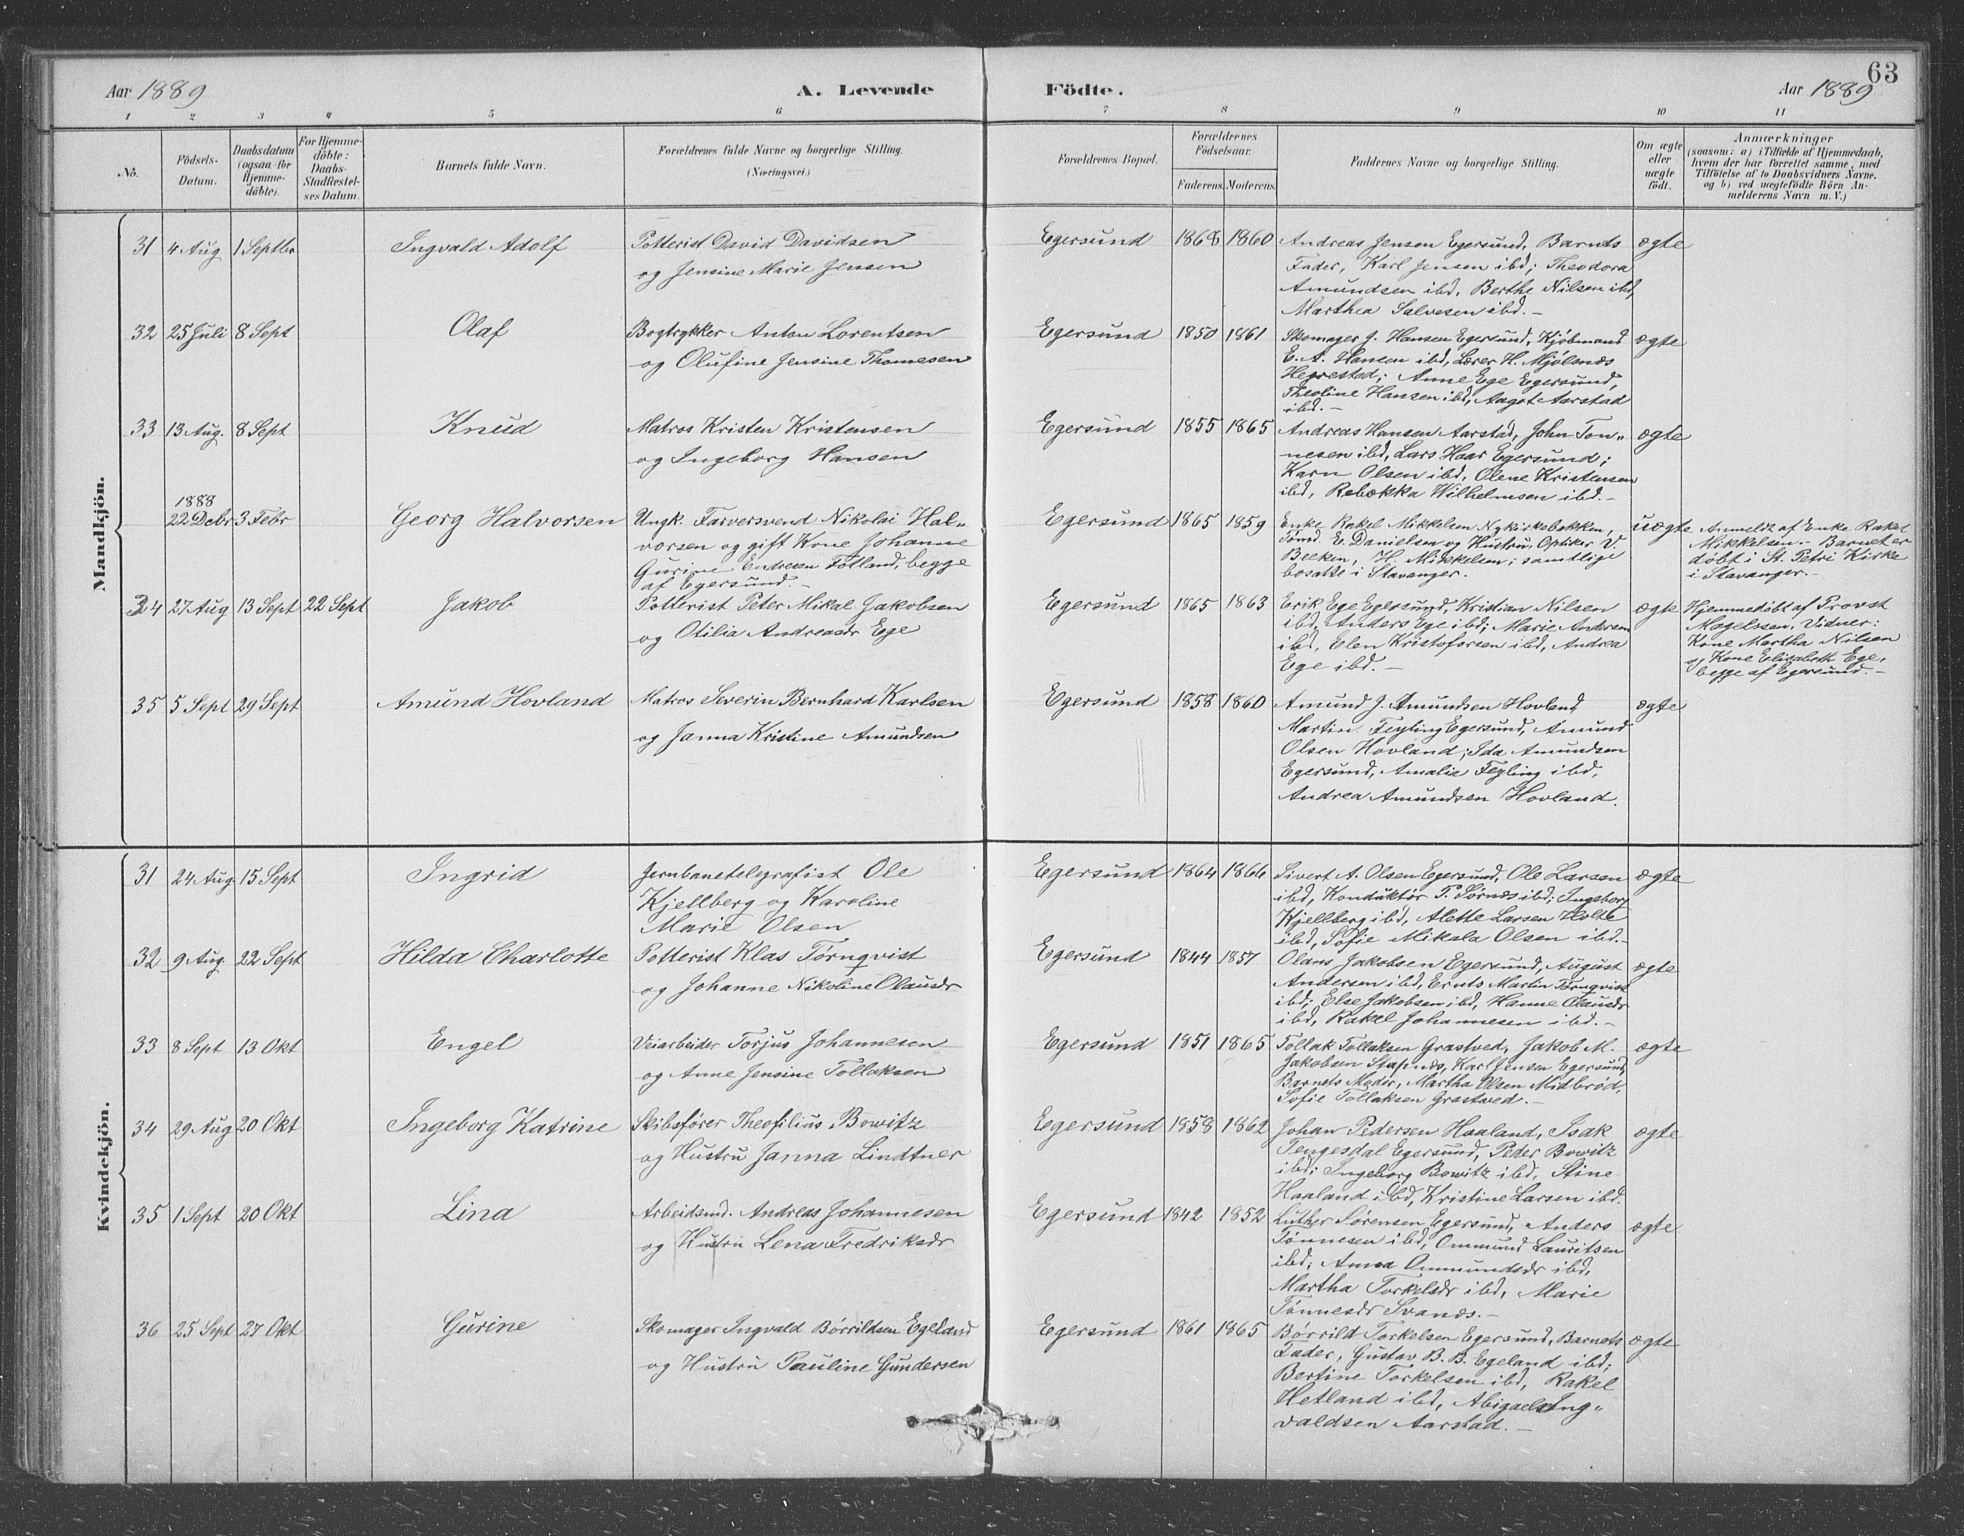 63
Aar 1889 A. Levende Födte. Aar 1889
1 2 3 4 5 6 7 8 9 10 11
No. Födsels-Datum. Daabsdatum (ogsaa for Hjemmedöbte). For Hjemmedöbte: Daabs-Stadfæstelses Datum. Barnets fulde Navn. Forældrenes fulde Navne og borgerlige Stilling. (Næringsvei.) Forældrenes Bopæl. Forældrenes Födselsaar. Faderens. Moderens. Faddernes Navne og borgerlige Stilling. Om ægte eller uægte födt. Anmærkninger (saasom: a) i Tilfælde af Hjemmedaab, hvem der har forrettet samme, med Tilföielse af to Daabsvidners Navne. og b) ved uægtefödte Börn Anmelderens Navn m. V.)
Mandkjön.
31 4 Aug 1 Septbr Ingvald Adolf Potterist David Davidsen Egersund 1868 1860 Andreas Jensen Egersund, Barnets ægte
og Jensine Marie Jensen Fader, Karl Jensen ibd; Theodora
Amundsen ibd, Berthe Nilsen ibd,
Marthea Salvesen ibd.-
32 25 Juli 8 Sept Olaf Bogtrykker Anton Lorentsen Egersund 1850 1861 Skomager J. Hansen Egersund, Kjöbmand ægte
og Olufine Jensine Thomesen E. A. Hansen ibd, Lærer H. Mjölsnæs
Hegrestad; Anne Ege Egersund,
Theoline Hansen ibd, Aagot Aarstad
ibd.-
33 13 Aug. 8 Sept Knud Matros Kristen Kristensen Egersund 1855 1865 Andreas Hansen Aarstad, John Ton- ægte
og Ingeborg Hansen nesen ibd, Lars Haar Egersund;
Karn Olsen ibd, Olene Kristensen
ibd, Rebekka Wilhelmsen ibd.-
1888
22 Debr 3 Febr Georg Halvorsen Ungk. Farversvend Nikolai Hal- Egersund 1865 1859 Enke Rakel Mikkelsen Nykirkebakken, uægte Anmeldt af Enke Rakel
vorsen og gift Kone Johanne Tömd E. Danielsen og Hustru, Optiker V Mikkelsen.- Barnet er
Gurine Endresen Fotland, begge Becken, H. Mikkelsen; samtlige döbt i St. Petri Kirke
af Egersund.- bosatte i Stavanger. i Stavanger.-
34 27 Aug 13 Sept 22 Sept Jakob Potterist Peter Mikal Jakobsen Egersund 1865 1863 Erik Ege Egersund, Kristian Nilsen ægte Hjemmedöbt af Provst
og Otilia Andreasdr Ege ibd, Anders Ege ibd; Marie Andersen Magelssen, Vidner:
ibd, Elen Kristofersen ibd, Andrea Kone Martha Nilsen
Ege ibd.- og Kone Elisabeth Ege,
begge af Egersund.-
35 5 Sept 29 Sept Amund Hovland Matros Severin Bernhard Karlsen Egersund 1858 1860 Amund J. Amundsen Hovland ægte
og Janna Kristine Amundsen Martin Feyling Egersund, Amund
Olsen Hovland; Ida Amundsen
Egersund, Amalie Feyling ibd,
Andrea Amundsen Hovland.
Kvindekjön.
31 24 Aug. 15 Sept Ingrid Jernbanetelegrafist Ole Egersund 1864 1866 Sivert A. Olsen Egersund, Ole Larsen ægte
Kjellberg og Karoline ibd, Konduktör P. Sörnæs ibd; Ingeborg
Marie Olsen Kjellberg ibd, Alette Larsen Holte
ibd, Sofie Mikala Olsen ibd.-
32 9 Aug 22 Sept Hilda Charlotte Potterist Klas Törnqvist Egersund 1844 1857 Olaus Jakobsen Egersund, August ægte
og Johanne Nikoline Olausdr Andersen ibd, Ernts Martin Törnqvist
ibd; Else Jakobsen ibd, Hanne Olausdr
ibd, Rakel Johannesen ibd.-
33 8 Sept 13 Okt Engel Veiarbeider Torjus Johannesen Egersund 1851 1865 Tollak Tollaksen Grastved, Jakob M. ægte
og Anne Jensine Tollaksen Jakobsen Stafsnds, Karl Jensen Egersund,
Barnets Moder, Martha Olsen Midbröd,
Sofie Tollaksen Grastved.-
34 29 Aug 20 Okt Ingeborg Katrine Skibsförer Theofilius Bowitz Egersund 1858 1862 Johan Pedersen Haaland, Isak ægte
og Hustru Janna Lindtner Tengesdal Egersund, Peder Bowitz
ibd; Ingeborg Bowitz ibd, Stine
Haaland ibd, Kristine Larsen ibd.
35 1 Sept 20 Okt Lina Arbeidsmd. Andreas Johannesen Egersund 1842 1852 Luther Sörensen Egersund, Anders ægte
og Hustru Lena Fredriksdr Tönnesen ibd, Ommund Lauritsen
ibd; Anna Ommundsdr ibd,
Martha Torkelsdr ibd, Marie
Tönnesdr Svanæs.-
36 25 Sept 27 Okt Gurine Skomager Ingvald Börrildsen Egeland Egersund 1861 1865 Börrild Torkelsen Egersund, Barnets ægte
og Hustru Pauline Gundersen Fader, Gustav B. B. Egeland ibd;
Bertine Torkelsen ibd, Rakel
Hetland ibd, Abigael Ing-
valdsen Aarstad.-